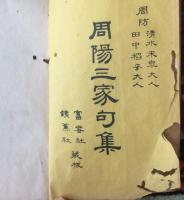 周防
清水米泉大人
田中稻子大人
周陽三家句集
富雲社
鏡蕉社
蔵梓